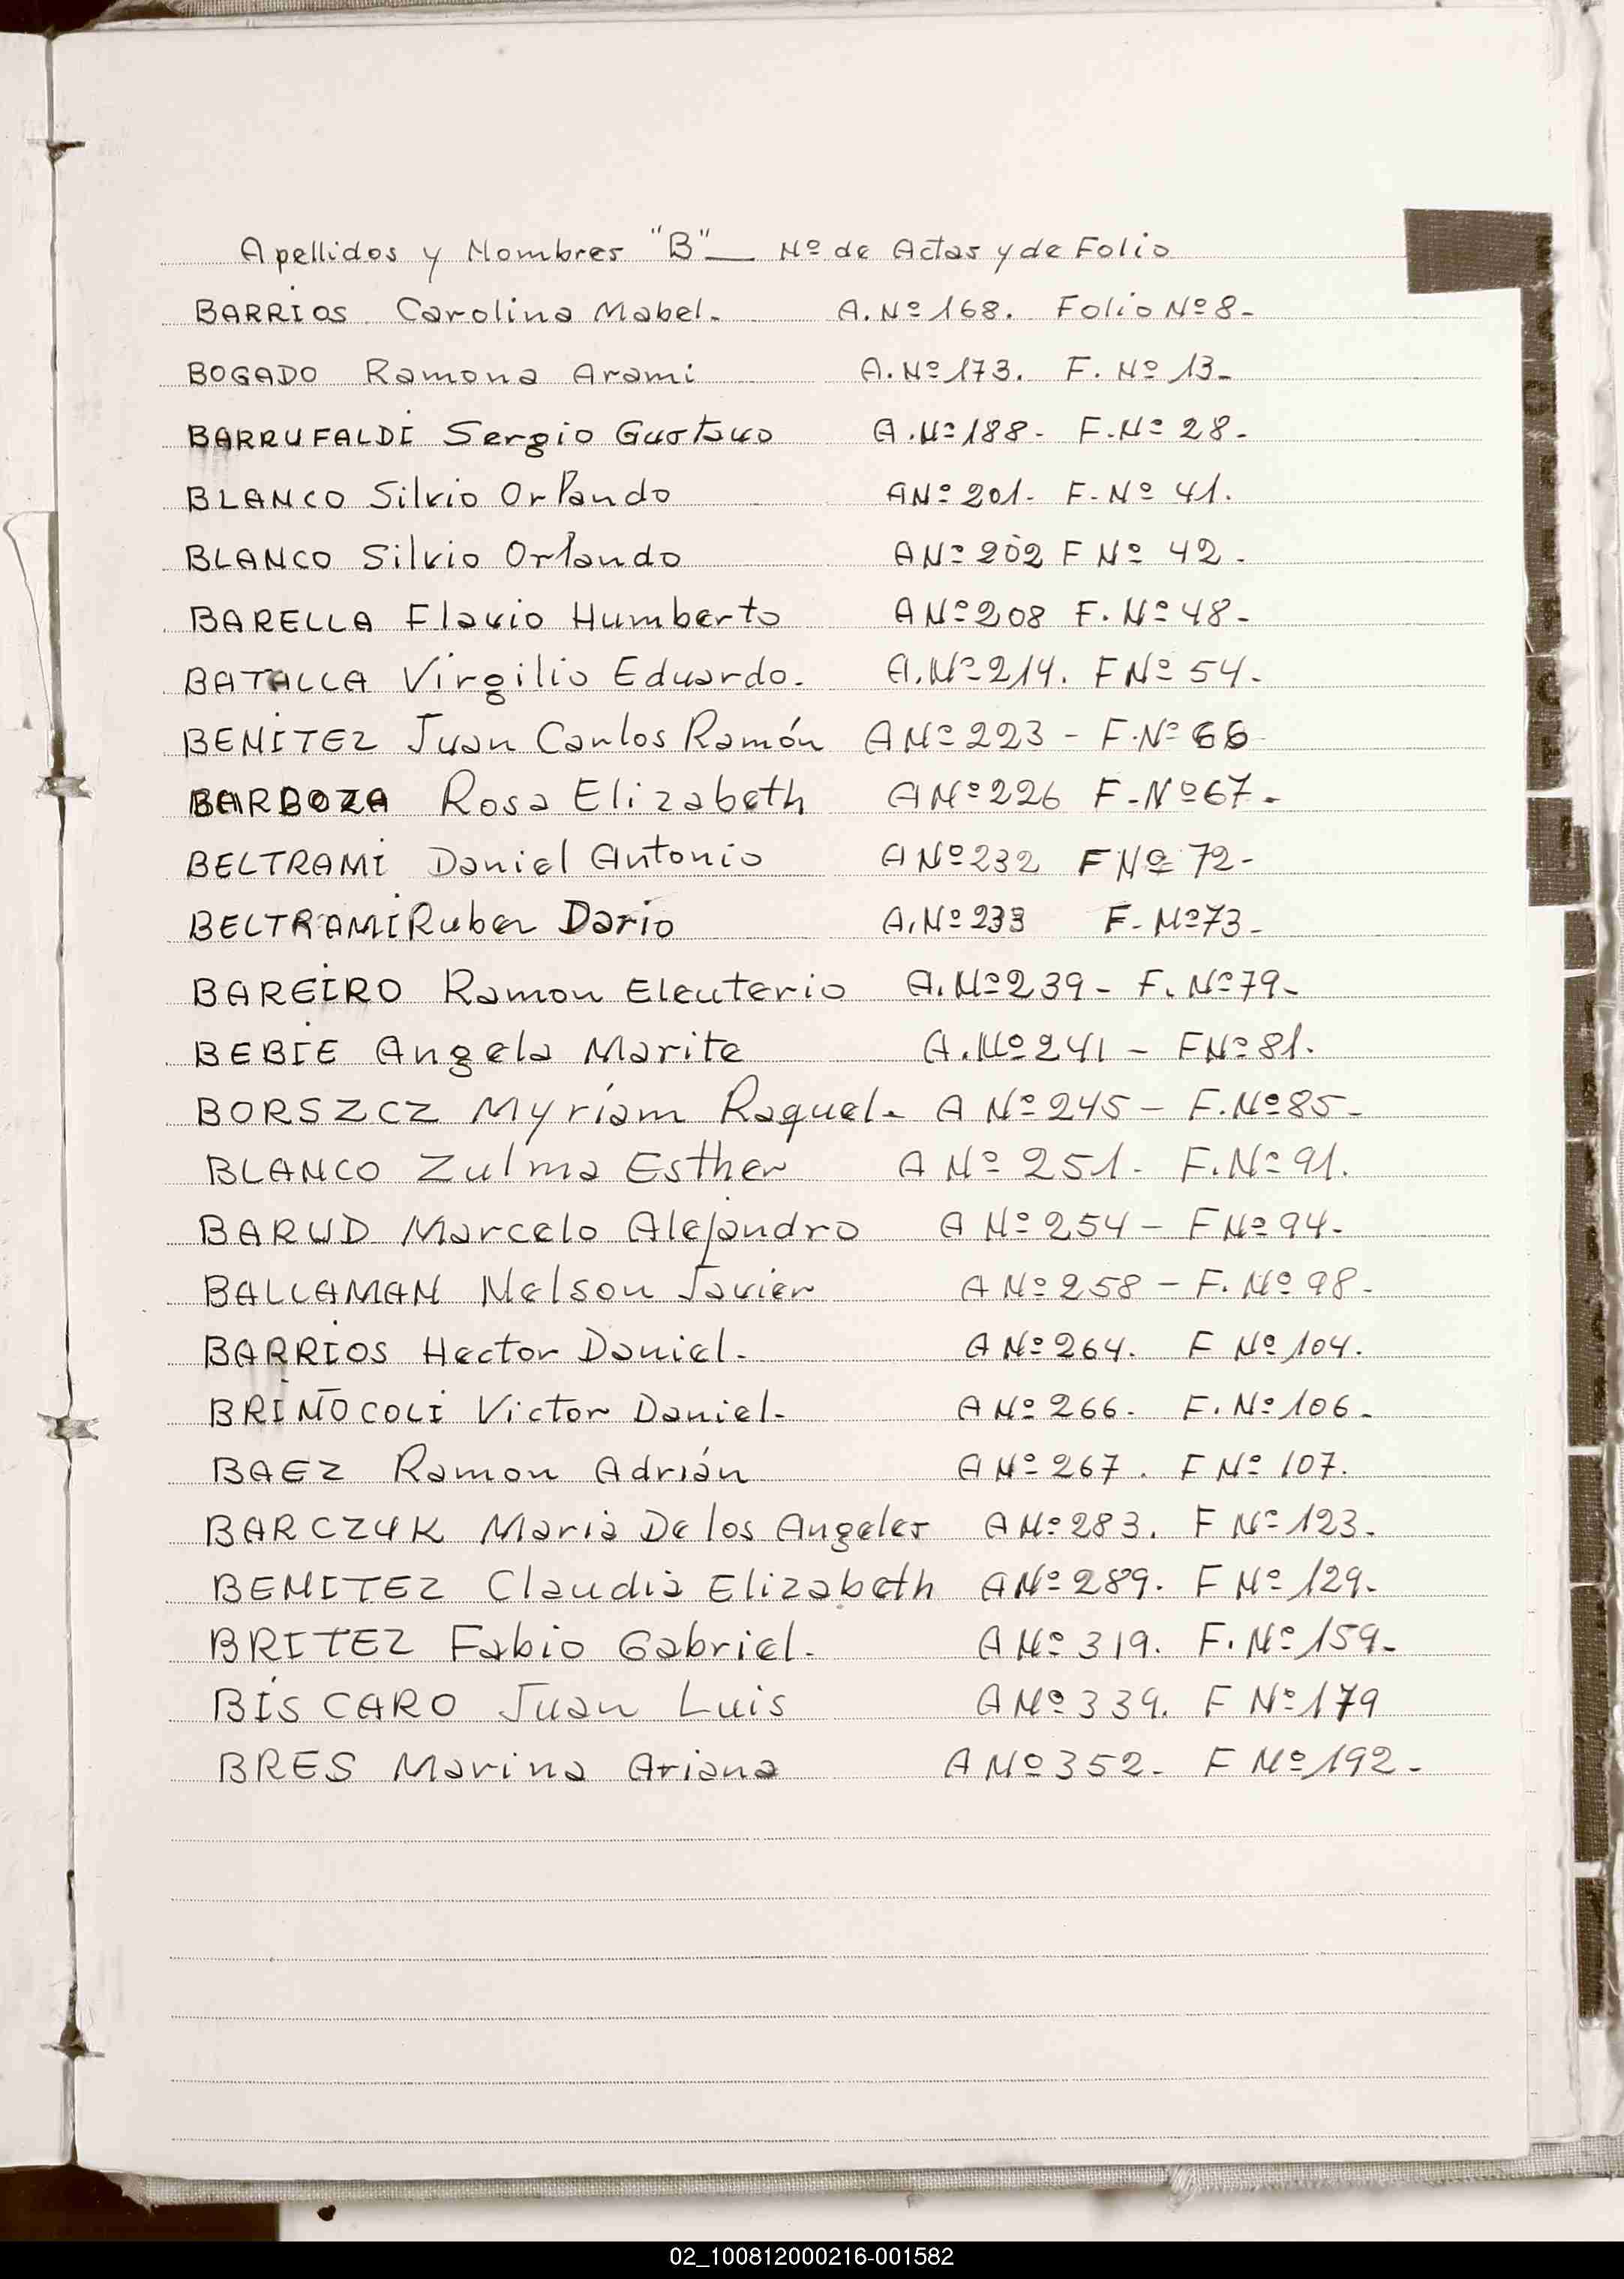 Apellidos y Nombres "B"— Nº de Actas y de Folio
BARRIOS Carolina Mabel. A. Nº 168. Folio Nº 8-
BOGADO Ramona Arami A. Nº 173. F. Nº 13-
BARRUFALDI Sergio Gustavo A. Nº 188- F. Nº 28-
BLANCO Silvio Orlando A Nº 201- F- Nº 41.
BLANCO Silvio Orlando A Nº 202 F Nº 42-
BARELLA Flavio Humberto A Nº 208 F. Nº 48-
BATALLA Virgilio Eduardo. A. Nº 214. F Nº 54-
BENITEZ Juan Carlos Ramón A Nº 223 - F. Nº 66
BARBOZA Rosa Elizabeth A Nº 226 F- Nº 67-
BELTRAMI Daniel Antonio A Nº 232 F Nº 72-
BELTRAMI Ruben Dario A. Nº 233 F- Nº 73-
BAREIRO Ramon Eleuterio A. Nº 239- F. Nº 79-
BEBIE Angela Marite A. Nº 241 - F Nº 81.
BORSZCZ Myriam Raquel- A Nº 245 - F. Nº 85-
BLANCO Zulma Esther A Nº 251- F. Nº 91.
BARUD Marcelo Alejandro A Nº 254 - F Nº 94-
BALLAMAN Nelson Javier A Nº 258 - F. Nº 98-
BARRIOS Hector Daniel- A Nº 264. F Nº 104.
BRIÑOCOLI Victor Daniel- A Nº 266- F. Nº 106-
BAEZ Ramon Adrián A Nº 267. F Nº 107.
BARCZUK Maria De los Angeles A Nº 283. F Nº 123-
BENITEZ Claudia Elizabeth A Nº 289. F Nº 129-
BRITEZ Fabio Gabriel- A Nº 319. F. Nº 159-
BISCARO Juan Luis A Nº 339. F Nº 179
BRES Marina Ariana A Nº 352- F Nº 192-
02_100812000216-001582